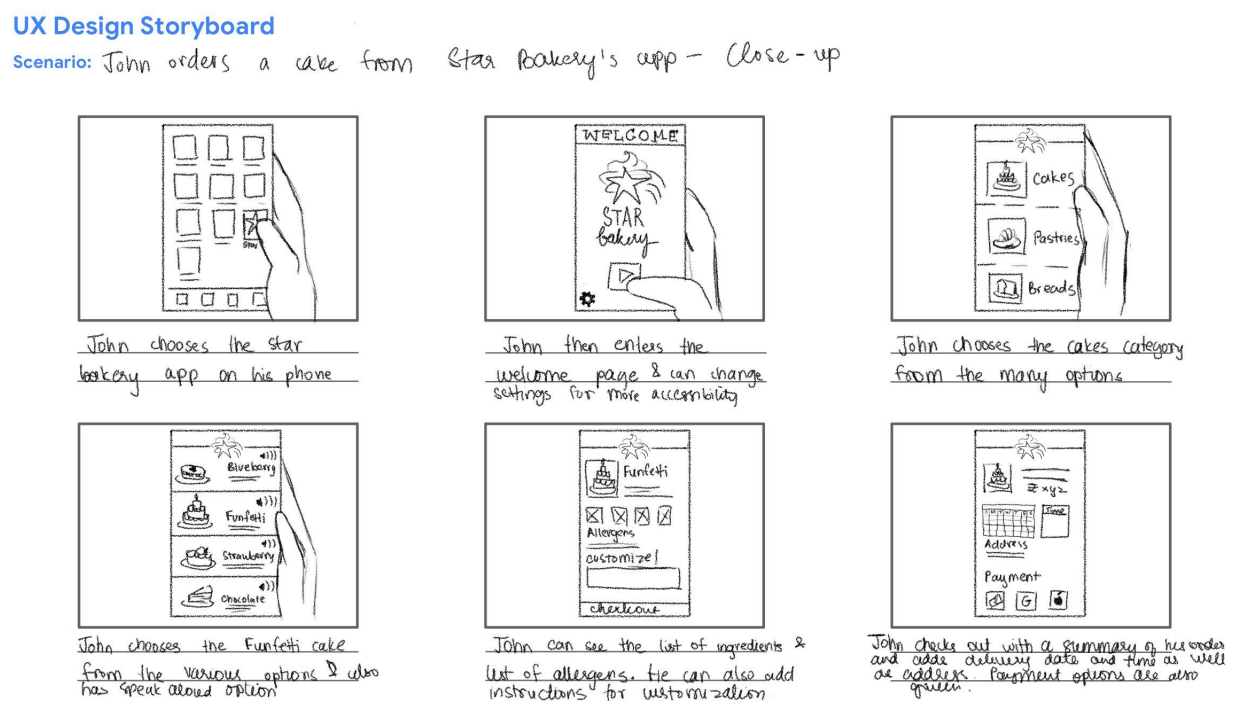 UX Design Storyboard
Scenario: John orders a cake from Star Bakery's app - Close-up
Star
John chooses the star
bakery app on his phone
WELCOME
STAR
bakery
John then enters the
welcome page & can change
settings for more accessibility
Cakes
Pastries
Breads
John chooses the cakes category
from the many options
Blueberry
Funfetti
Strawberry
Chocolate
John chooses the Funfetti cake
from the various options & also
has speak aloud option
Funfetti
Allergens
customize!
checkout
John can see the list of ingredients &
list of allergens. He can also add
instructions for customization
₹ xyz
Time
Address
Payment
G
John checks out with a summary of his order
and adds delivery date and time as well
as address. Payment options are also
given.